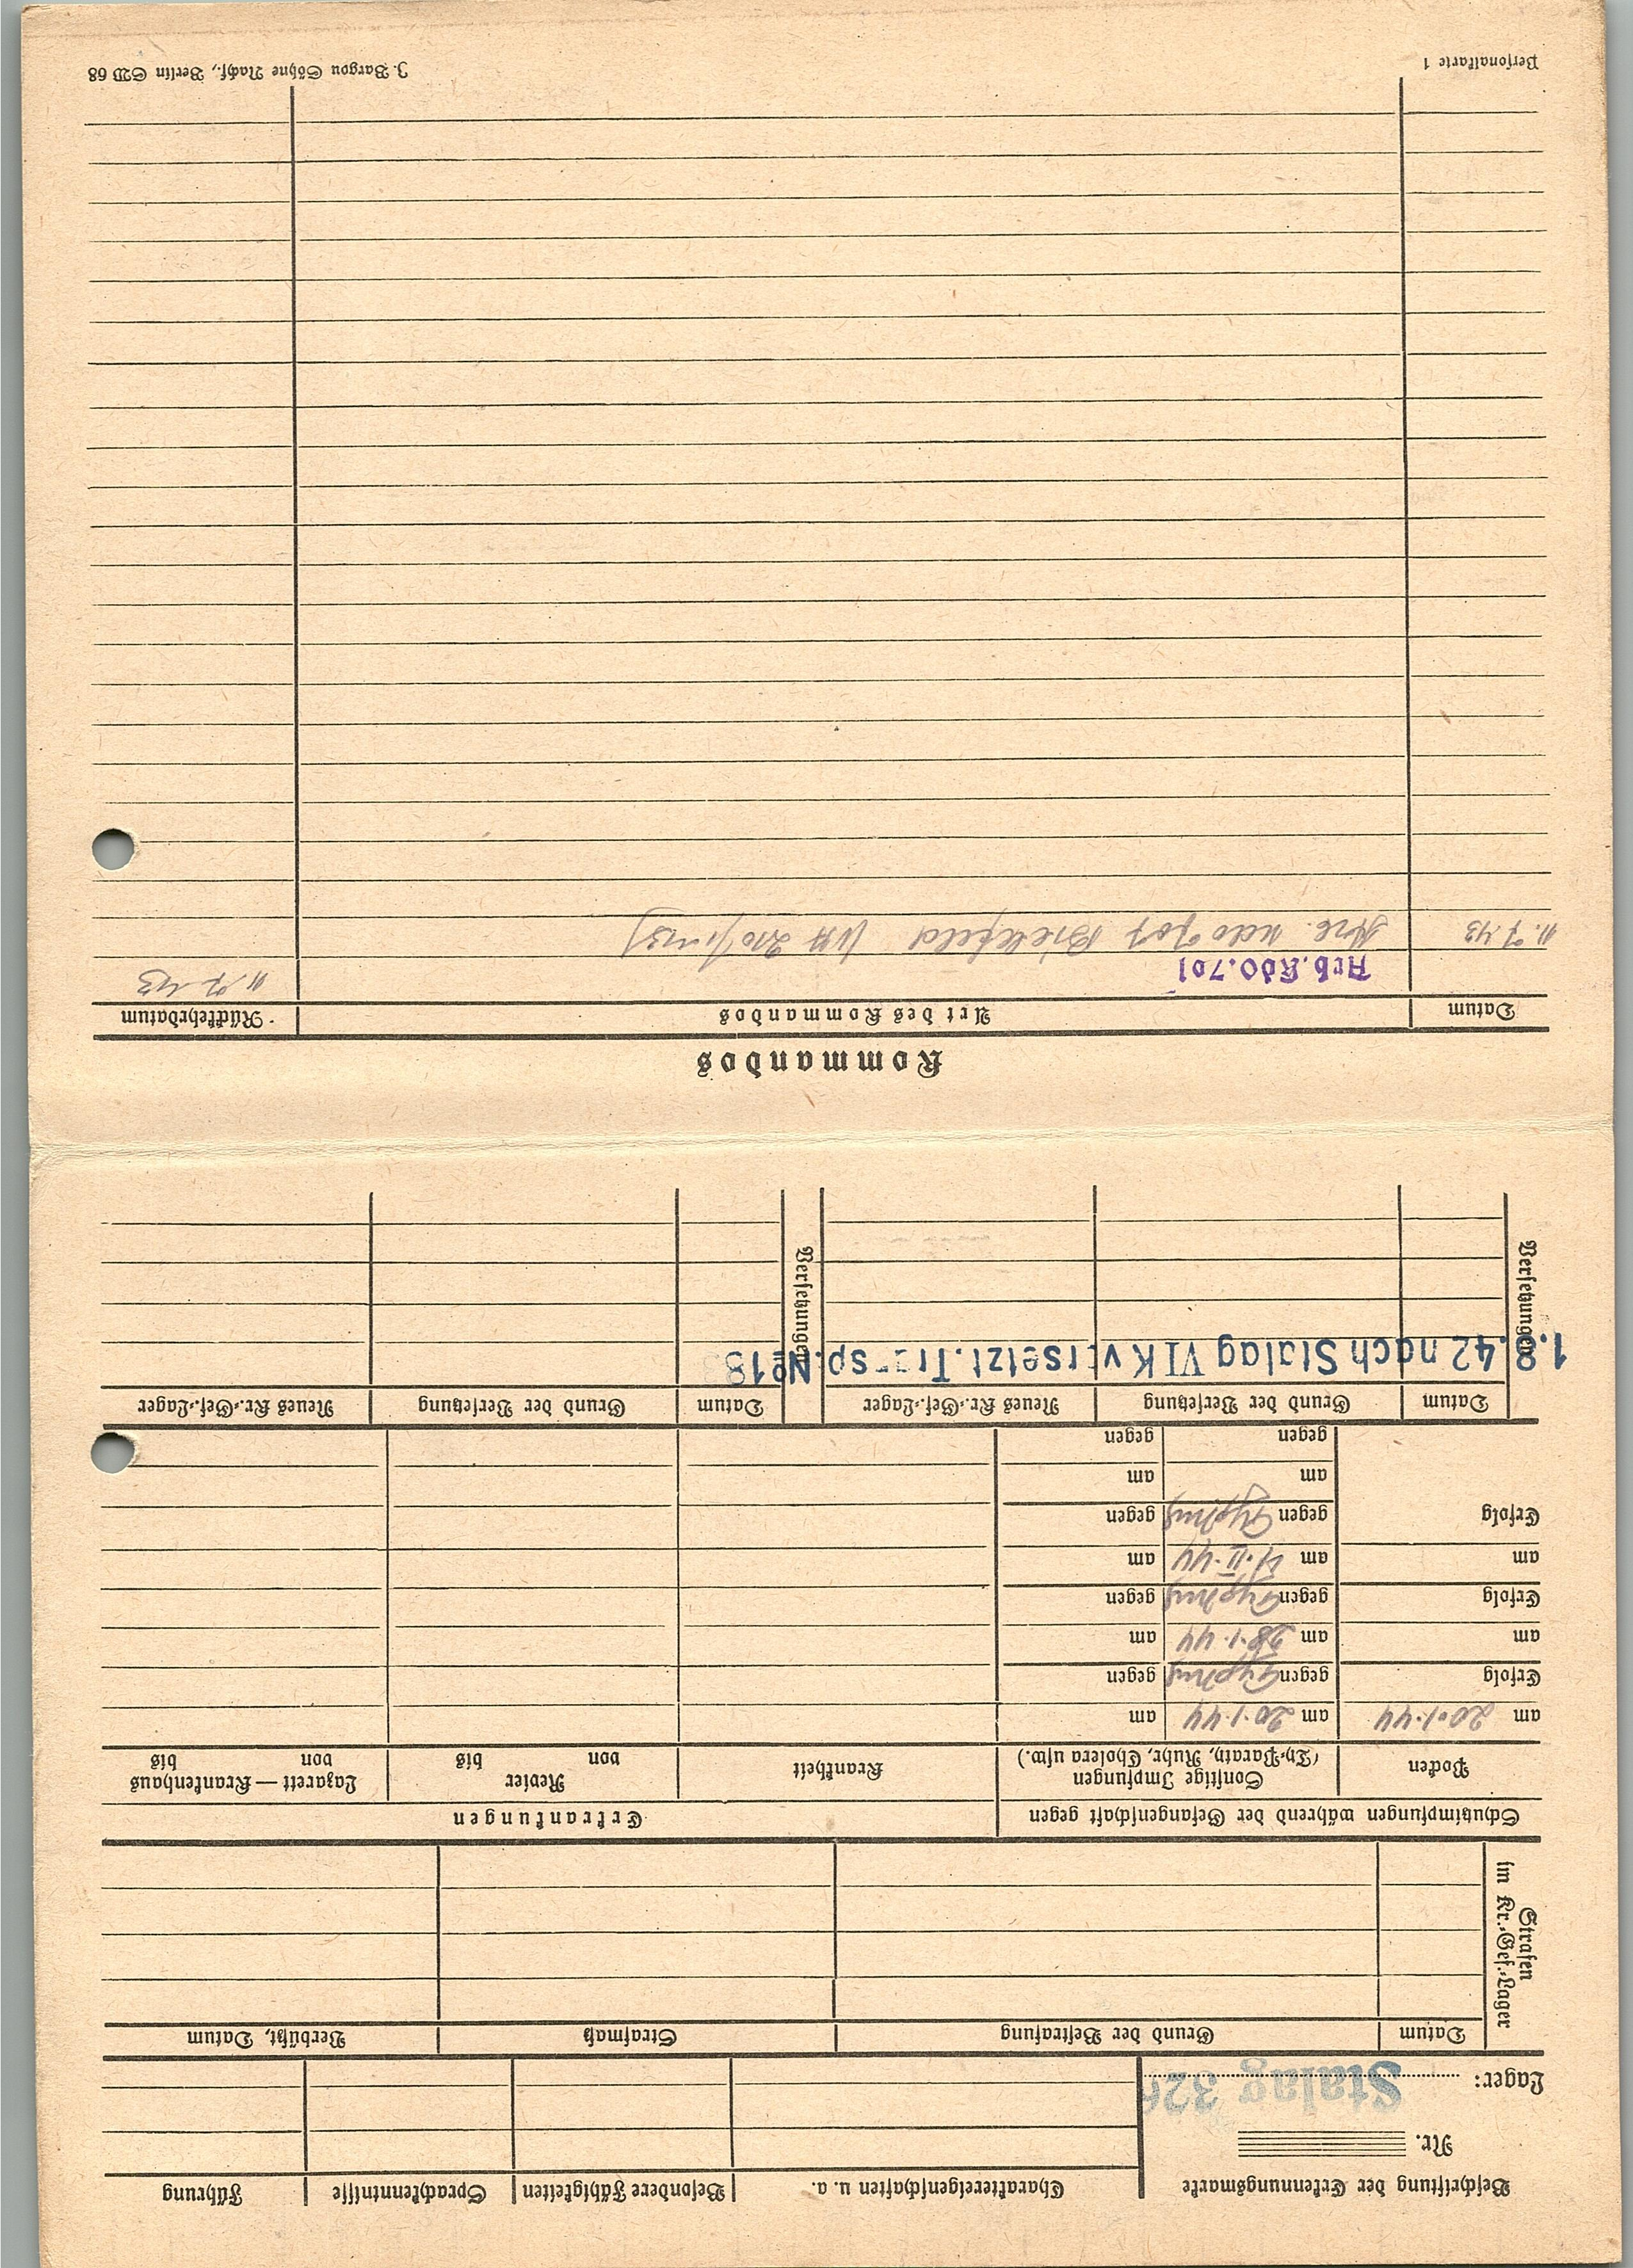 Beschriftung der Erkennungsmarke
Nr.
Lager: Stalag 326
Charaktereigenschaften u. a. Besondere Fähigkeiten Sprachkenntnisse Führung
Strafen im Kr.-Gef.-Lager
Datum Grund der Bestrafung Strafmaß Verbüßt, Datum
Schutzimpfungen während der Gefangenschaft gegen Erkrankungen
Pocken Sonstige Impfungen Krankheit Revier Lazarett — Krankenhaus
(Ty.-Paraty., Ruhr, Cholera usw.) von bis von bis
am 20.1.44 am 20.1.44 am
Erfolg gegen Typhus gegen
am am 28.1.44 am
Erfolg gegen Typhus gegen
am am 4.II.44 am
Erfolg gegen Typhus gegen
am am
gegen gegen
Versetzungen Datum Grund der Versetzung Neues Kr.-Gef.-Lager Versetzungen Datum Grund der Versetzung Neues Kr.-Gef.-Lager
1.8.42 nach Stalag VI K versetzt. Transp. № 18
Kommandos
Datum Art des Kommandos Rückkehrdatum
Arb.Kdo.701 11.7.43
11.7.43
Personalkarte 1 J. Bargou Söhne Nachf., Berlin SW 68